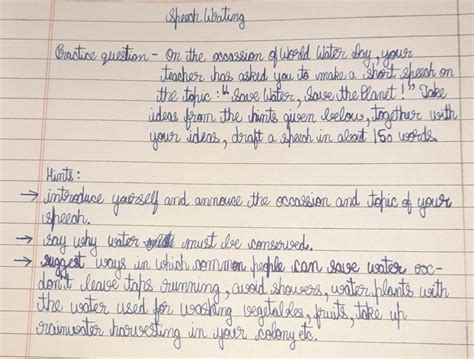 Speech Writing
Practice question - On the occassion of World Water day, your
teacher has asked you to make a short speech on
the topic : "Save Water, Save the Planet!" Take
ideas from the hints given below, together with
your ideas, draft a speech in about 150 words.
Hints :
→ introduce yourself and annouce the occassion and topic of your
speech.
→ say why water must be conserved.
→ suggest ways in which common people can save water
don't leave taps running, avoid showers, water plants with
the water used for washing vegetables, fruits, take up
rainwater harvesting in your colony etc.